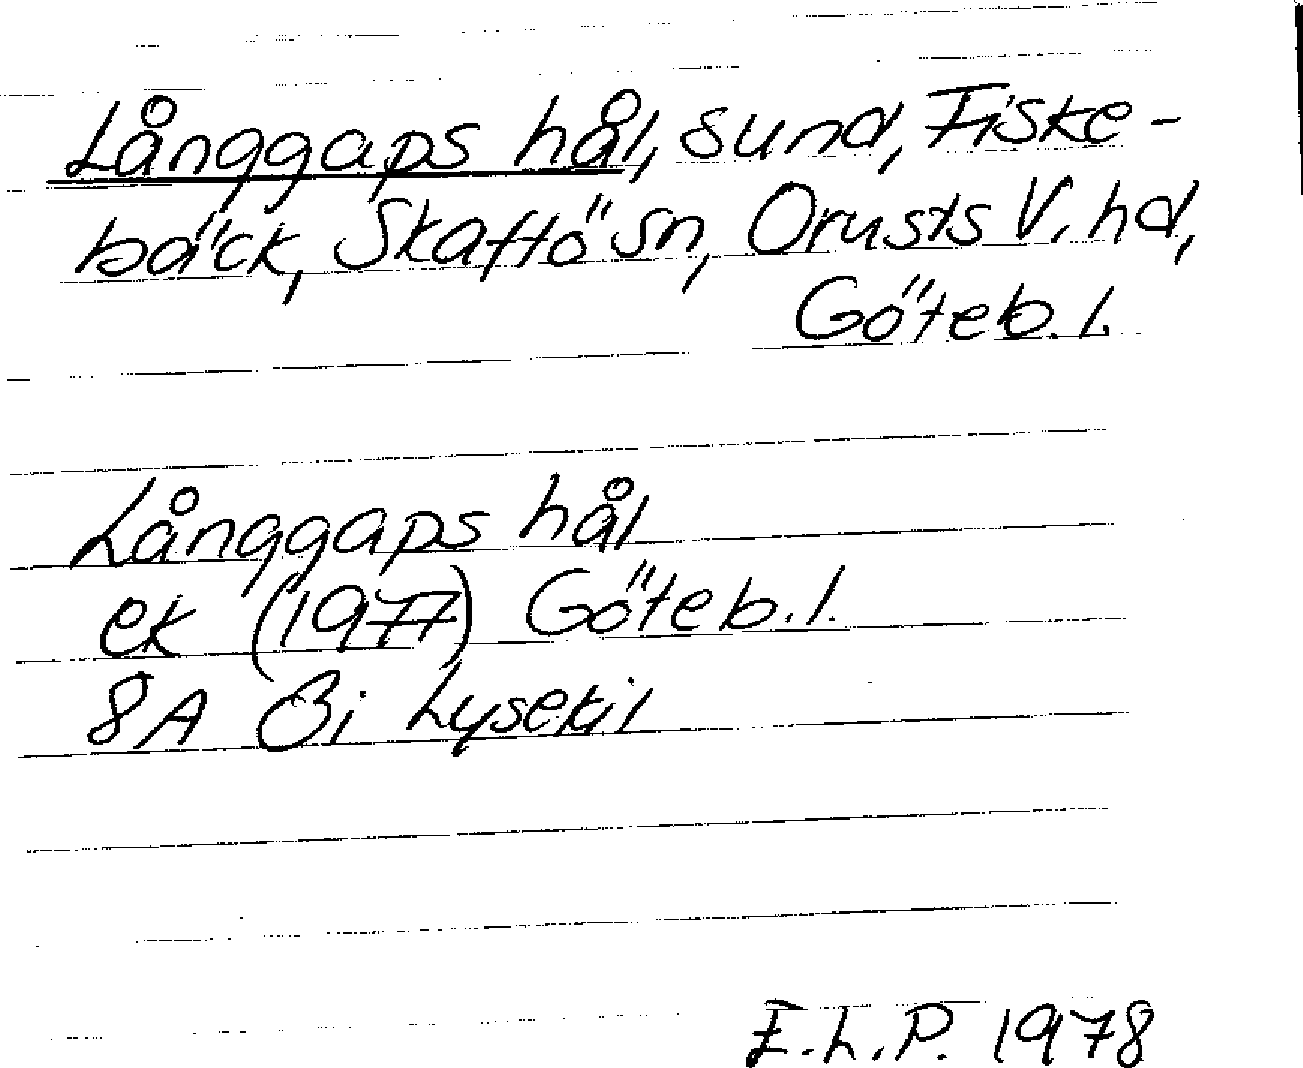 Långgaps hål, sund, Fiske-
bäck, Skaftö sn, Orusts V. hd,
Göteb. l.
Långgaps hål
ek (1977) Göteb. l.
8A Bi Lysekil
E.L.P. 1978